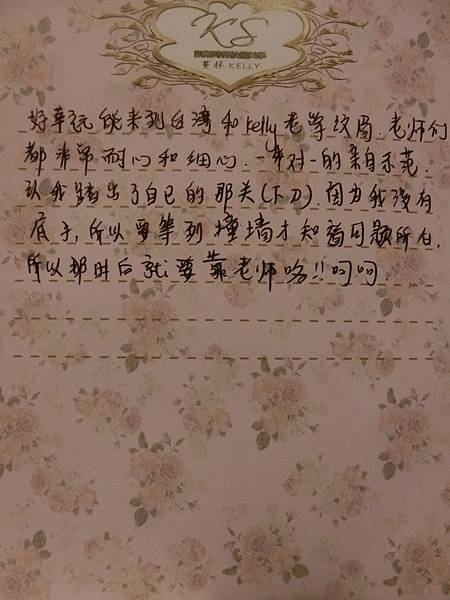 KS
蔓林 KELLY
好幸运能来到台湾和kelly老学纹眉.老师们
都非常耐心和细心.一对一的亲自示范.
让我踏出了自己的那关(下刀).因为我没有
底子,所以要等到撞墙才知道问题所在.
所以那时白就要靠老师咯!!呵呵